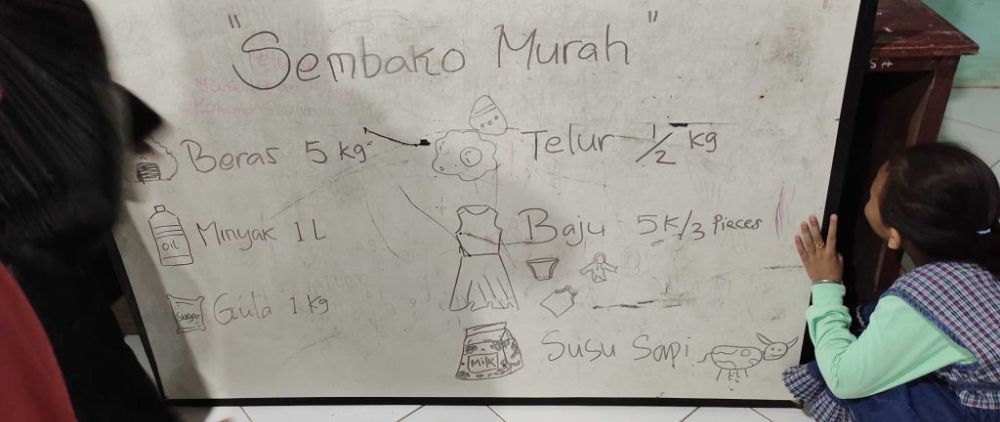 "Sembako Murah"
Beras 5 kg
Telur 1/2 kg
OIL
Minyak 1 L
Baju 5K/3 Pieces
Sugar
Gula 1 kg
MilK
Susu Sapi